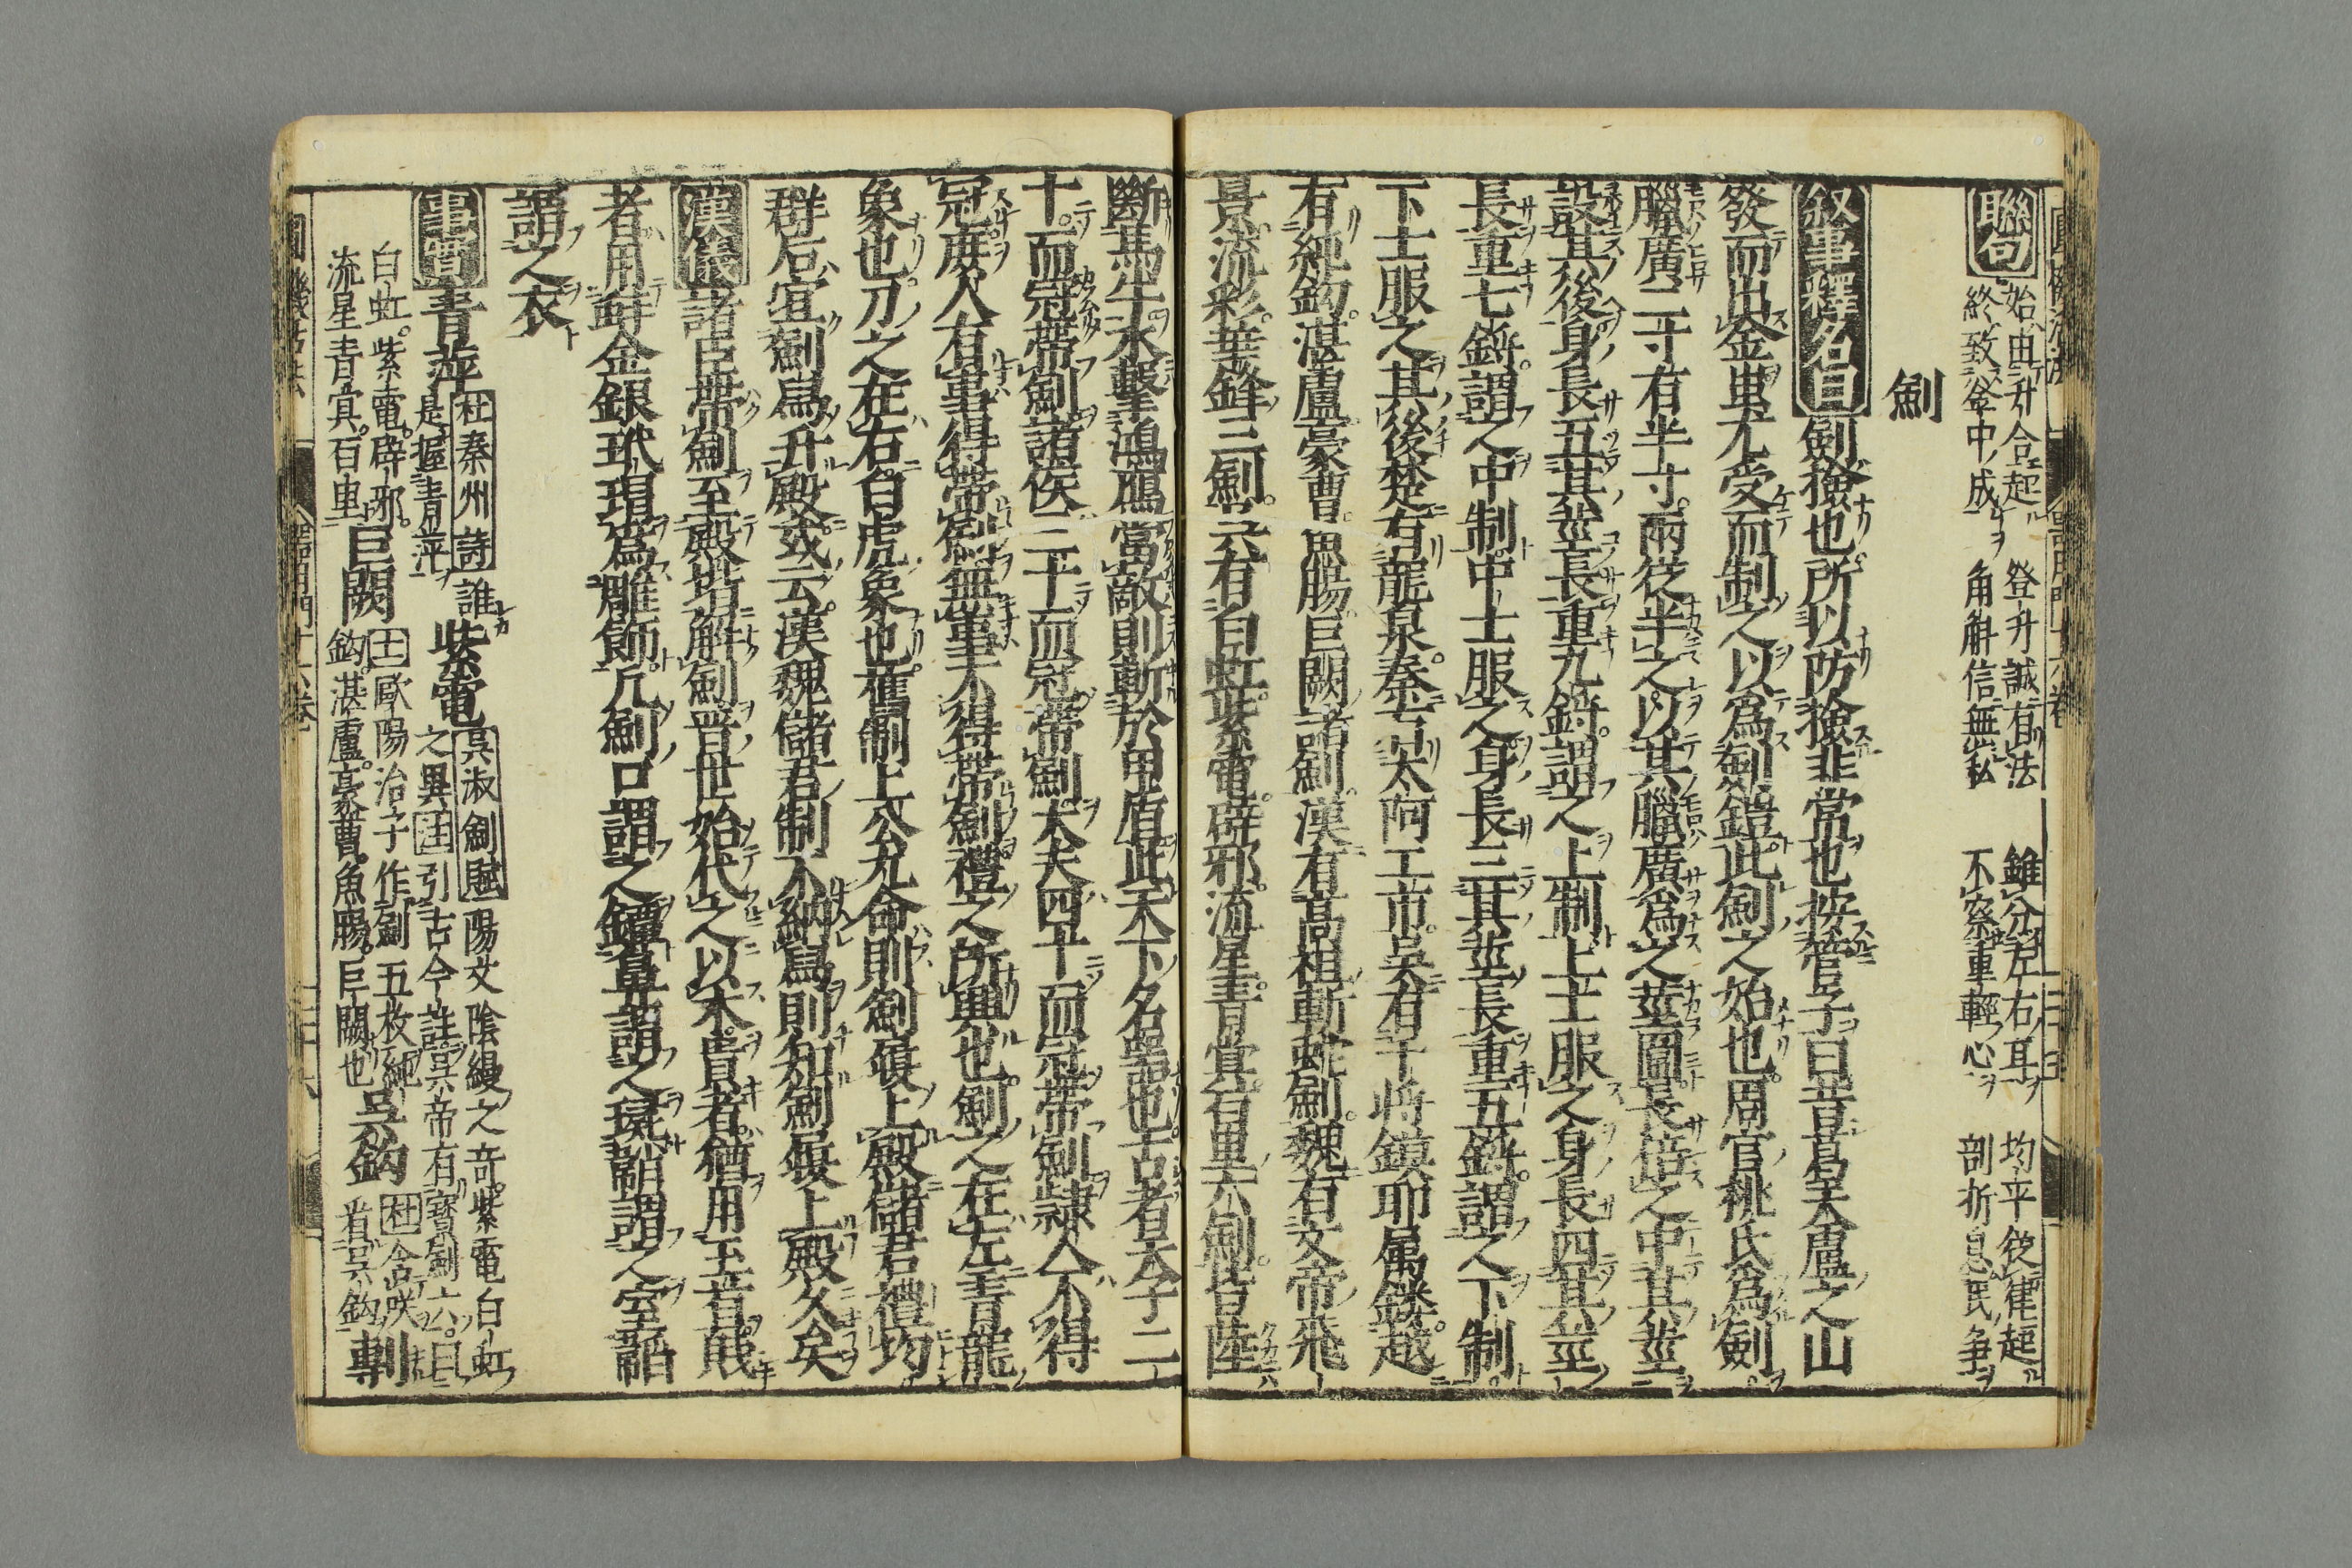 聯句
始由升合起 登升誠有法 雖分左右耳 均平從律起
終致釜中成 角斛信無私 不察重輕心 剖折息民争
劍
叙事釋名曰劍撿也所以防撿非常也按管子曰昔葛天盧之山
發而出金蚩尤受而制之以爲劍鎧此劍之始也周官桃氏爲劍
臘廣二寸有半寸兩從半之以其臘廣爲之莖圍長倍之中其莖
設其後身長五其莖長重九鋝謂之上制上士服之身長四其莖
長重七鋝謂之中制中士服之身長三其莖長重五鋝謂之下制
下士服之其後楚有龍泉秦有太阿工市吳有干將鏌耶属鏤越
有純鈎湛盧豪曹魚膓巨闕諸劍漢有髙祖斬蛇劍魏有文帝飛
景流彩華鋒三劍吳有白虹紫電辟邪流星青㝠百里六劍皆陸
斷馬牛水擊鴻鴈當敵則斬於甲盾此天下名器也古者天子二
十而冠帶劍諸侯三十而冠帶劍大夫四十而冠帶劍隷人不得
冠庻人有事得帶劍無事不得帶劍禮之所興也劍之在左青龍
象也刀之在右白虎象也舊制上公九命則劍履上殿儲君禮均
群后宜劍舄升殿或云漢魏儲君制不納舄則知劍履上殿久矣
漢儀諸臣帶劍至殿堦解劍晋世始代之以木貴者猶用玉首賎
者用蚌金銀玳瑁為雕飾凢劍口謂之鐔鼻謂之璏鞘謂之室韜
謂之衣
事實青萍杜秦州詩誰是握青萍紫電吳淑劍賦陽文陰縵之奇紫電白虹之異注引古今註吳帝有寳劍六曰
白虹紫電辟邪流星青㝠百里巨闕注歐陽冶子作劍五枚純鈎湛盧豪曹魚膓巨闕也吳鈎杜含咲看吳鈎剸
圓機活法 器用門十六卷